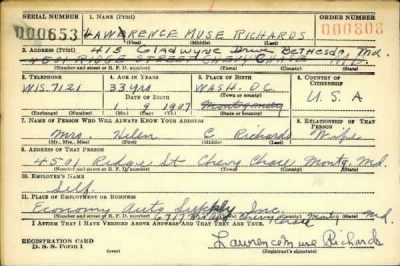 SERIAL NUMBER 1. NAME (Print) ORDER NUMBER
000653 LAWRENCE MUSE RICHARDS 000803
(First) (Middle) (Last)
2. ADDRESS (Print) 415 Gladwyne Drive Bethesda, Md.
4501 RIDGE STREET CHEVY CHASE MD.
(Number and street or R. F. D. number) (Town) (County) (State)
3. TELEPHONE 4. AGE IN YEARS 5. PLACE OF BIRTH 6. COUNTRY OF CITIZENSHIP
WIS. 7121 33 yrs WASH. D.C.
DATE OF BIRTH (Town or county)
1 9 1907 Montgomery U. S. A
(Exchange) (Number) (Mo.) (Day) (Yr.) (State or country)
7. NAME OF PERSON WHO WILL ALWAYS KNOW YOUR ADDRESS 8. RELATIONSHIP OF THAT PERSON
Mrs. Helen C Richards Wife
(Mr., Mrs., Miss) (First) (Middle) (Last)
9. ADDRESS OF THAT PERSON
4501 Ridge St Chevy Chase Montg. Md.
(Number and street or R. F. D. number) (Town) (County) (State)
10. EMPLOYER'S NAME
Self.
11. PLACE OF EMPLOYMENT OR BUSINESS
Economy Auto Supply Inc.
6717 Chevy Chase Montg Md.
(Number and street or R. F. D. number) (Town) (County) (State)
I AFFIRM THAT I HAVE VERIFIED ABOVE ANSWERS AND THAT THEY ARE TRUE.
REGISTRATION CARD
D. S. S. Form 1
Lawrence Muse Richards
(Registrant's signature)